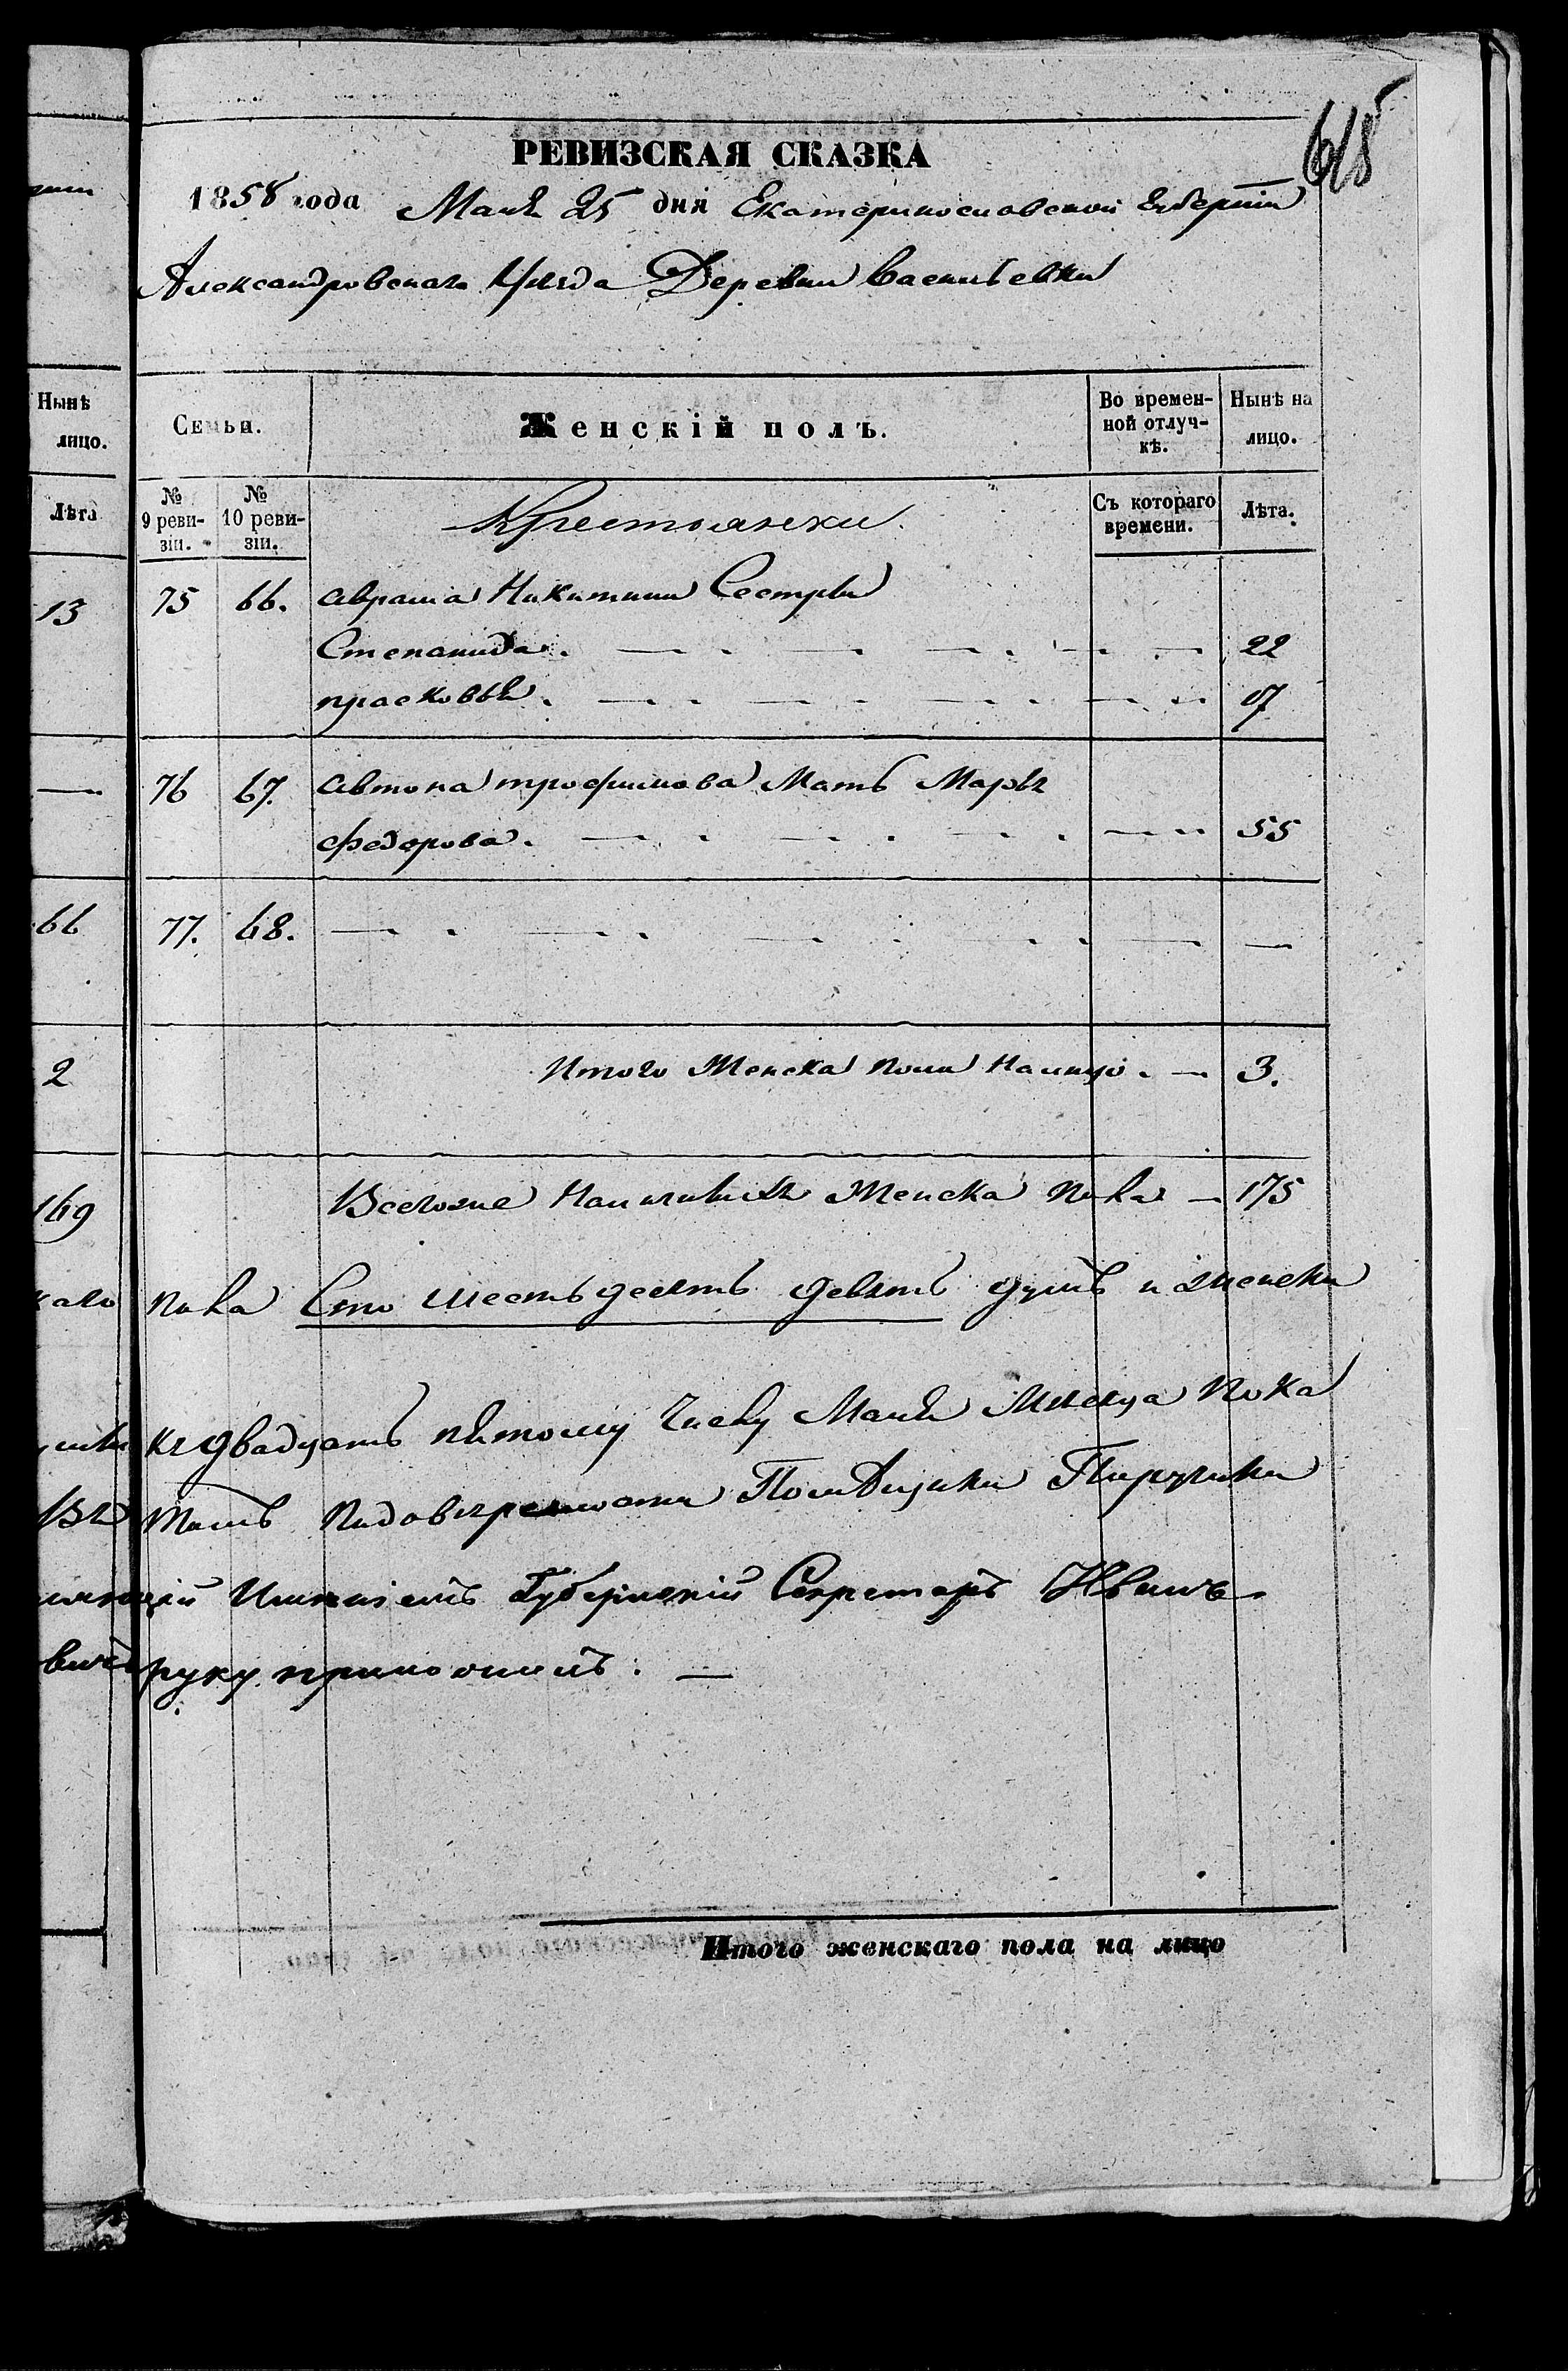 615
РЕВИЗСКАЯ СКАЗКА
1858 года Маія 25 дня Екатеринославской Губерніи
Александровскаго Уезда Деревни Васильевки
Нынѣ
лицо.
Лѣта
13
—
66
2
169
Семьи.
Женскій полъ.
Во времен-
ной отлуч-
кѣ.
Нынѣ на
лицо.
№
9 реви-
зіи.
№
10 реви-
зіи.
Крестьянки.
Съ котораго
времени.
Лѣта.
75 66. Аврама Никитина Сестры
Степанида. 22
Прасковья. 17
76 67. Автона Трофимова Мать Марья
Федорова. 55
77. 68. — —
Итого Женска пола налицо. — 3.
Всегоже Наличныхъ Женска пола — 175
каго пола Сто шестьдесятъ девять душъ и женска
къ двадцать пятому Числу Маія Месяца Пока
Въ томъ Подовѣренности Помѣщика Поручика
Имѣніемъ Губернскій Секретарь Иванъ
вичъ руку приложилъ. —
Итого женскаго пола на лицо